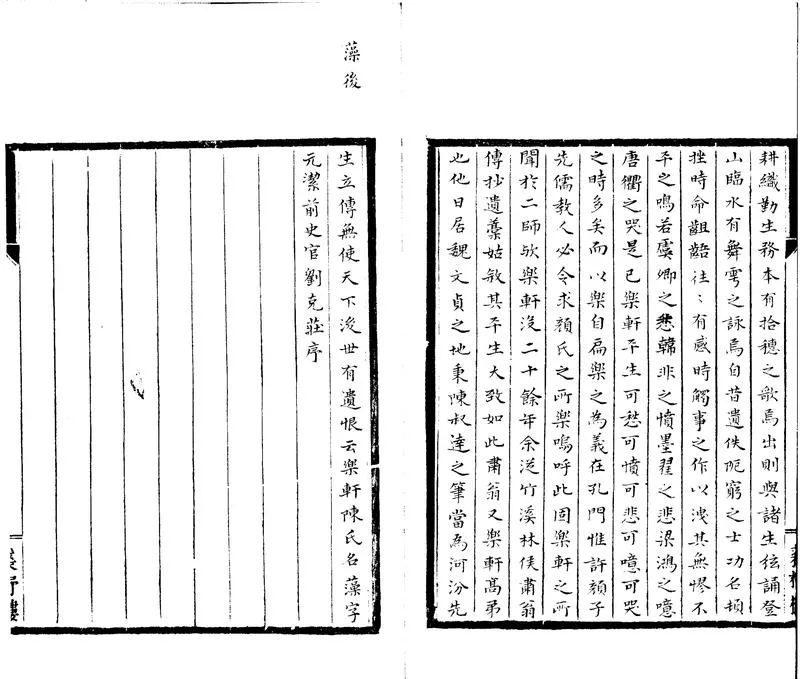 耕織勤生務本有拾穗之歌焉出則與諸生弦誦登
山臨水有舞雩之詠焉自昔遺佚阨窮之士功名頓
挫時命齟齬往〻有感時觸事之作以洩其無憀不
平之鳴若虞卿之愁韓非之憤墨翟之悲梁鴻之噫
唐衢之哭是已樂軒平生可愁可憤可悲可噫可哭
之時多矣而以樂自扁樂之為義在孔門惟許顏子
先儒教人必令求顏氏之所樂嗚呼此固樂軒之所
聞於二師歟樂軒沒二十餘年余從竹溪林侯肅翁
傳抄遺藁姑敘其平生大致如此肅翁又樂軒髙弟
也他日居魏文貞之地秉陳叔逹之筆當為河汾先
藻後
生立傳無使天下後世有遺恨云樂軒陳氏名藻字
元潔前史官劉克莊序